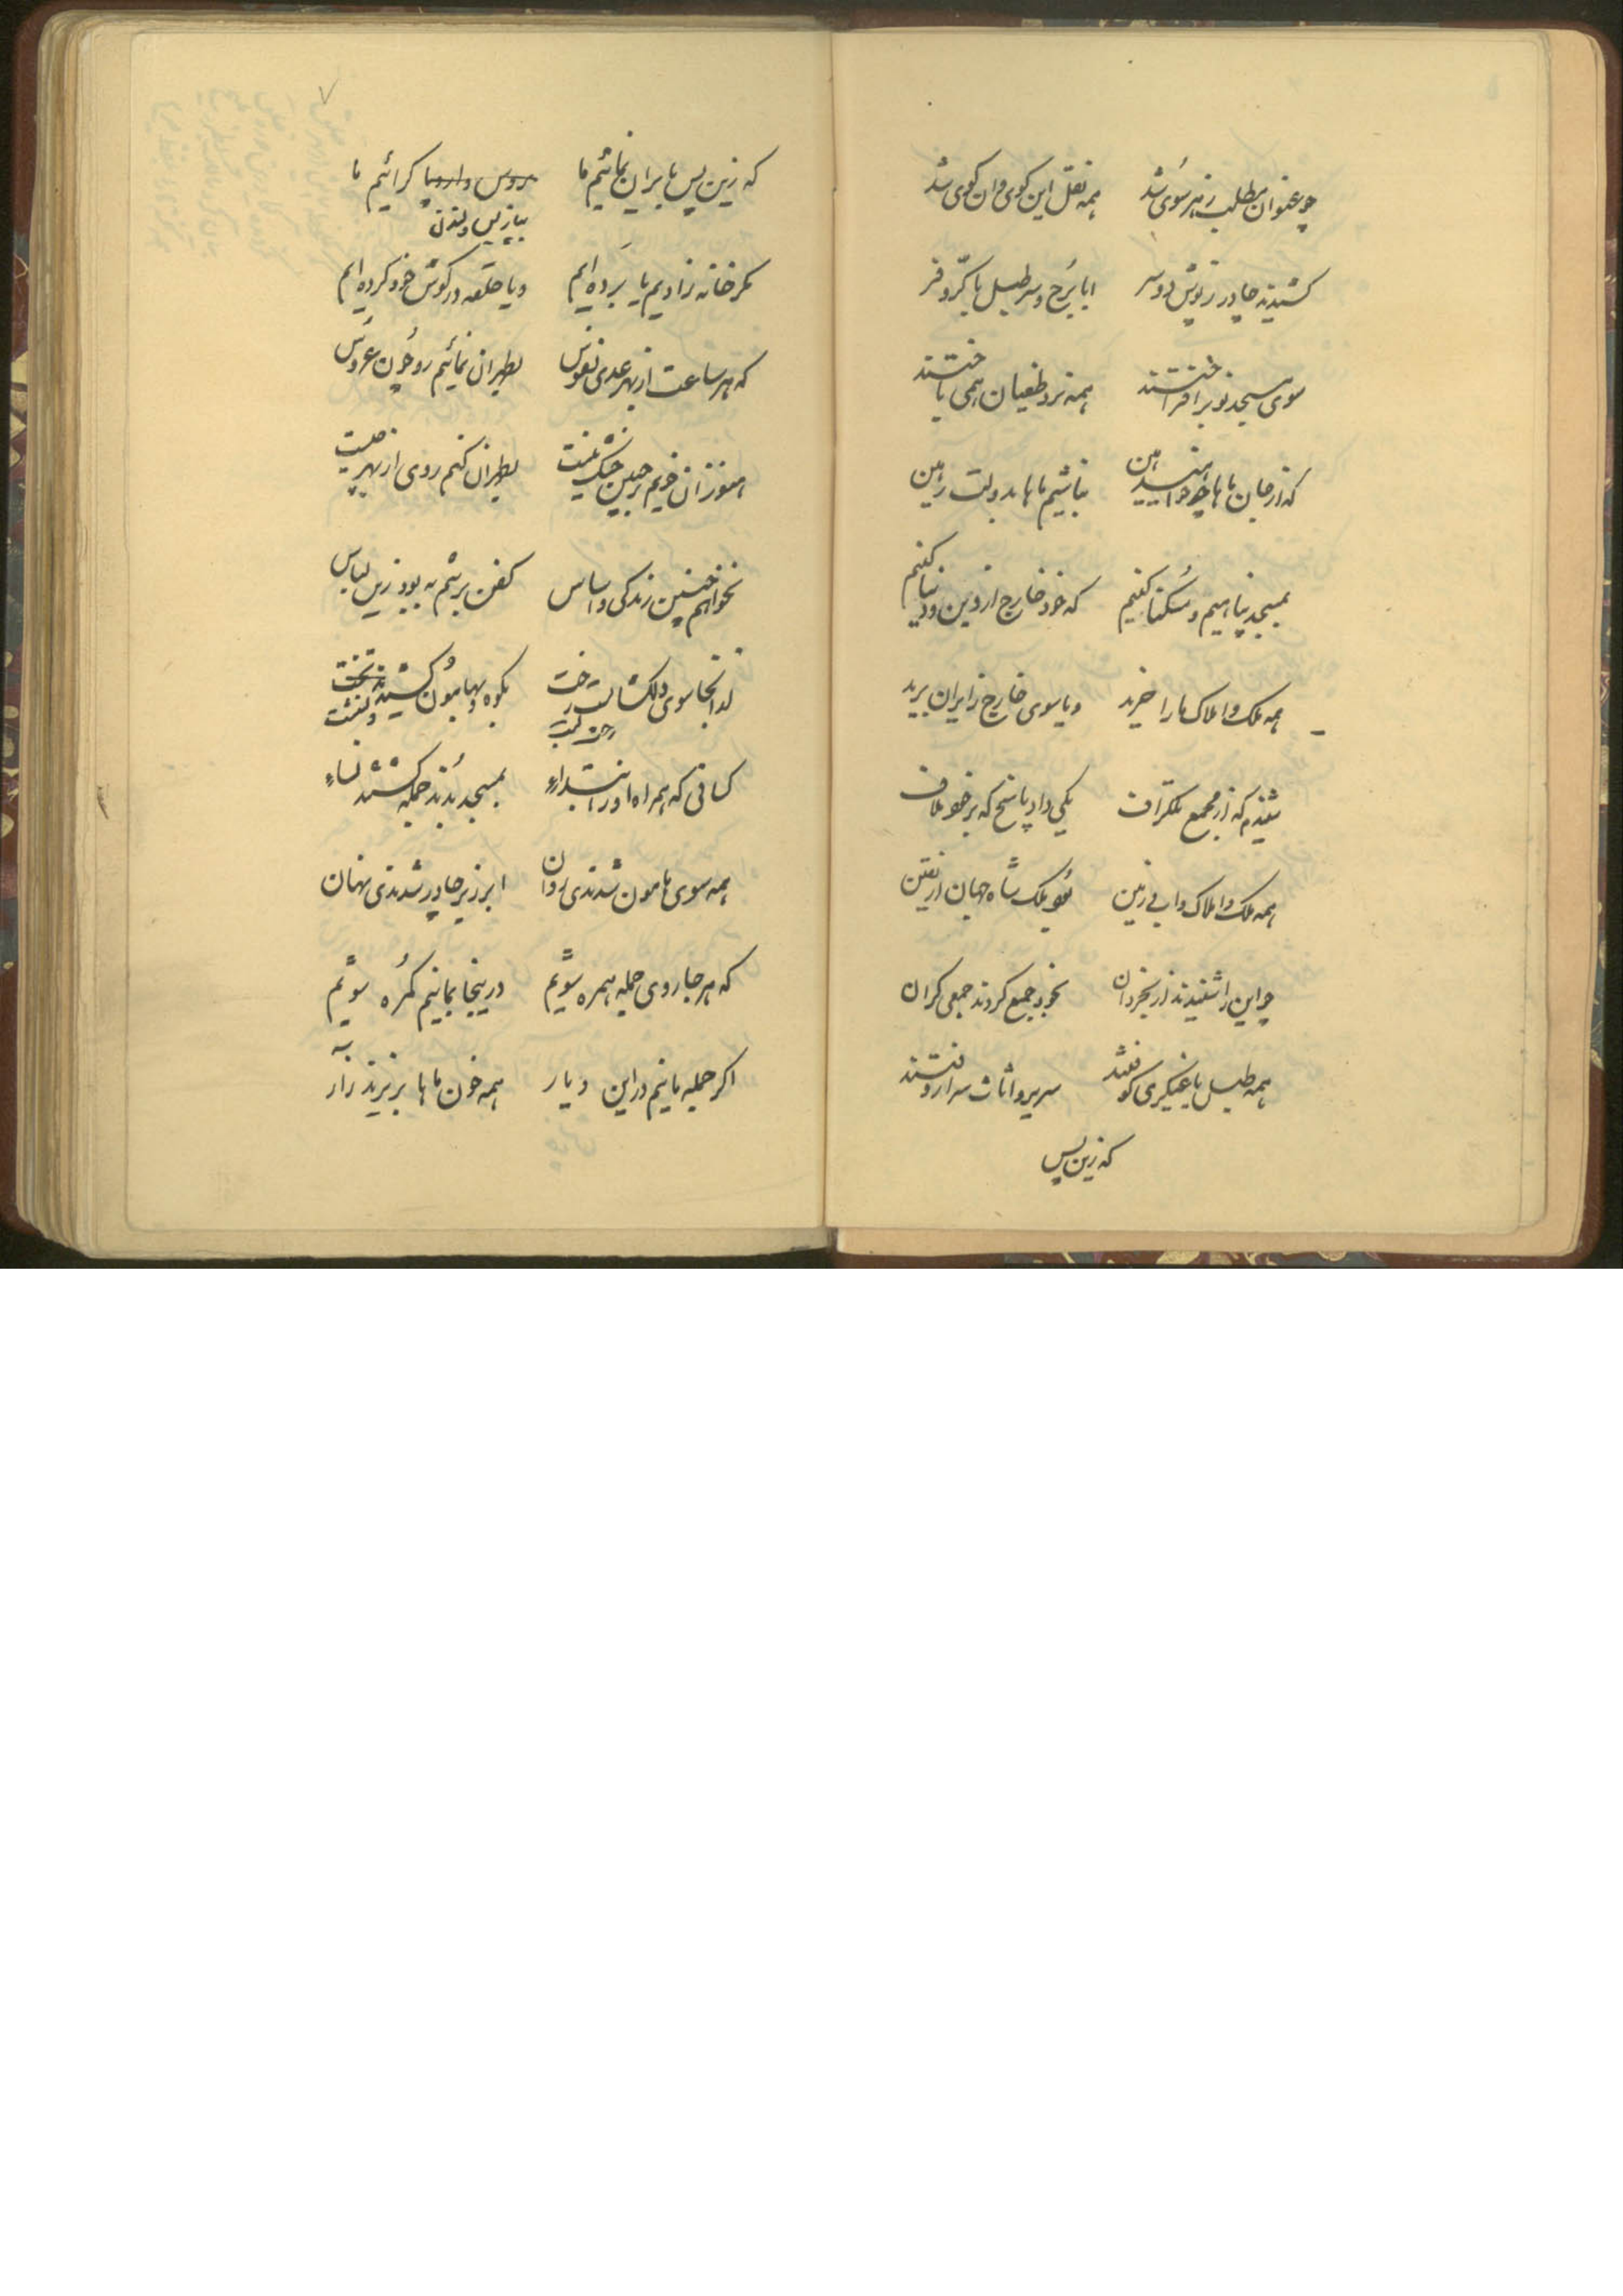 چو عنوان مطلب ز هر سوی شد همه نقل این کوی و ان کوی شد
کشیدند چادر ز نوش دو سر ابا برح و سر طبل با کرّ و فر
سوی مسجد نو بر افراختند همه نرد طغیان همی باختند
که از جان ماها چه خواهید هین نباشیم ماها بدولت رهین
بمسجد پناهیم و سُکنا کنیم که خود خارج از دین و دنیا کنیم
همه ملک و املاک ما را خرند و یا سوی خارج ز ایران برند
شنیدم که از مجمع تلگراف یکی داد پاسخ که بر خلاف
همه ملک و املاک و ابی زمین بُود ملک شاه جهان از یقین
چو این را شنیدند از بخردان بخود جمع کردند جمعی کران
همه طبل یاغیگری کوفتند سریر و اثاث سرا روفتند
که زین پس
۷
که زین پس بایران نمائیم ما بروس و اروپا کرائیم ما
بپاریس و لندن
مکر خانه زادیم یا بَرده ایم و یا حلقه در کوش خود کرده ایم
که هر ساعت از بهر عدی نفوس بطهران نمائیم رو چون عروس
هنوزان خویم بر جبین خشک نیست بطهران کنم روی از بهر چیست
نخواهم چنین زندکی و اساس کفن بر تنم به بود زین لباس
از انجا سوی دلکشا بست رخت بکوه و بهامون کشیدند تخت
کسانی که همراه او در ابتداء بمسجد بُدند جمله کشتند نساء
همه سوی هامون شدندی روان ابر زیر چادر شدندی نهان
که هر جا روی جمله همره شویم در اینجا بمانیم کمره شویم
اکر جمله مانیم در این دیار همه خون ماها بریزند زار